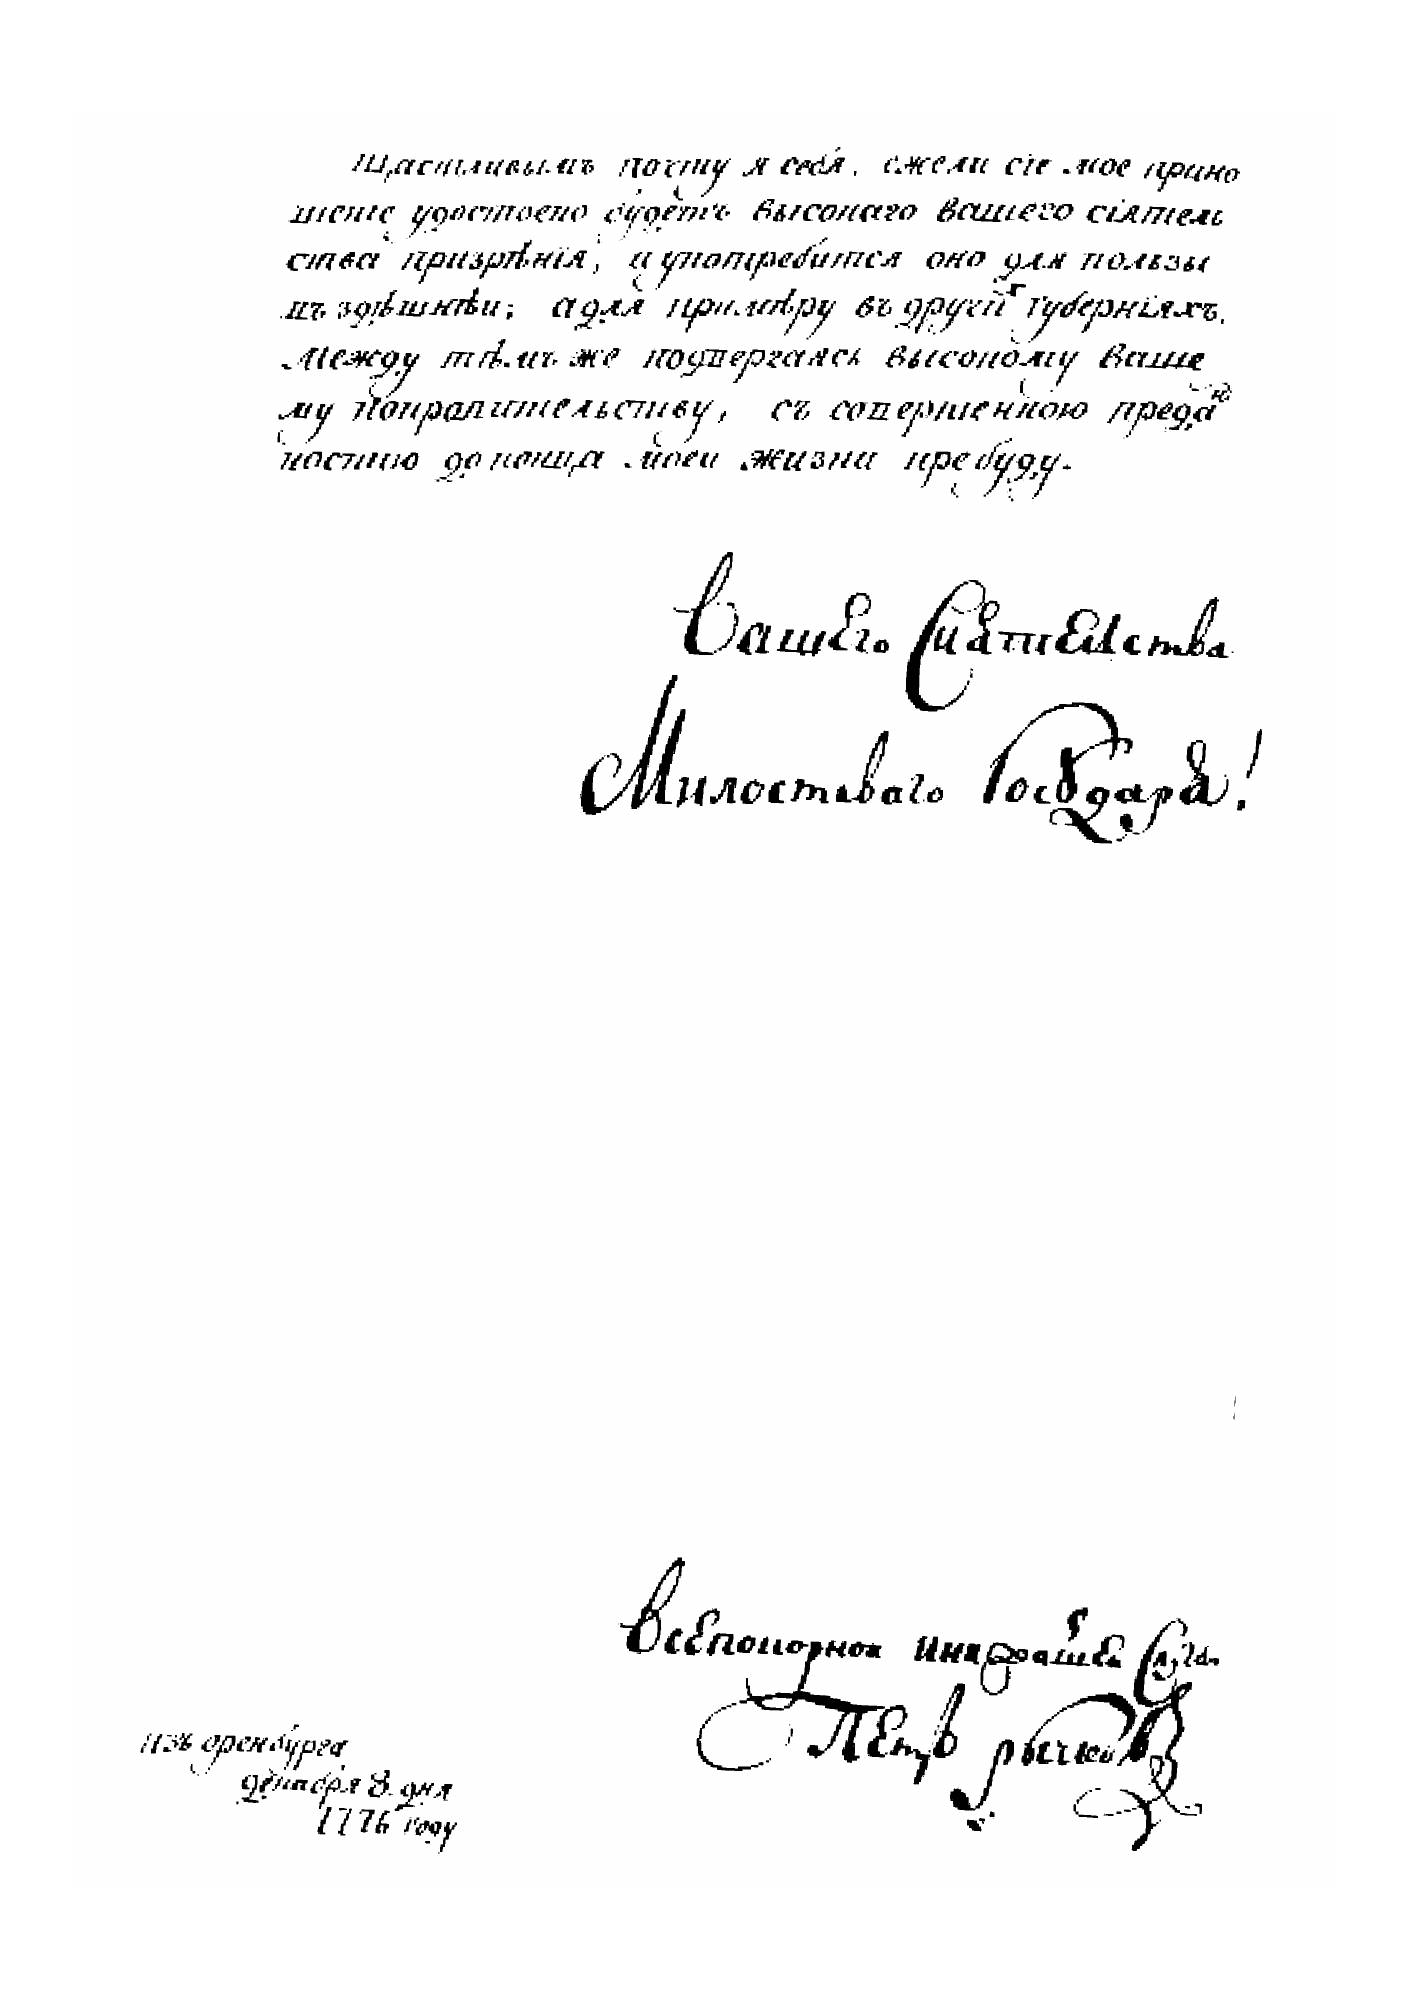 Щастливымъ почту я себя, ежели сїе мое прино
шенїе удостоено будетъ высокаго вашего сїятель
ства призрѣнїя, и употребится оно для пользы
въ здѣшнѣи; а для примѣру въ другихъ губернїяхъ.
Между тѣмъ же подвергаясь высокому ваше
му покровительству, съ совершенною преда
ностию до конца моеи жизни пребуду.
Вашего Сиятелства
Милостиваго Государя!
Всепокорнои
Слуга
Петръ Рычковъ
изъ оренбурга
декабря 8 дня
1776 году